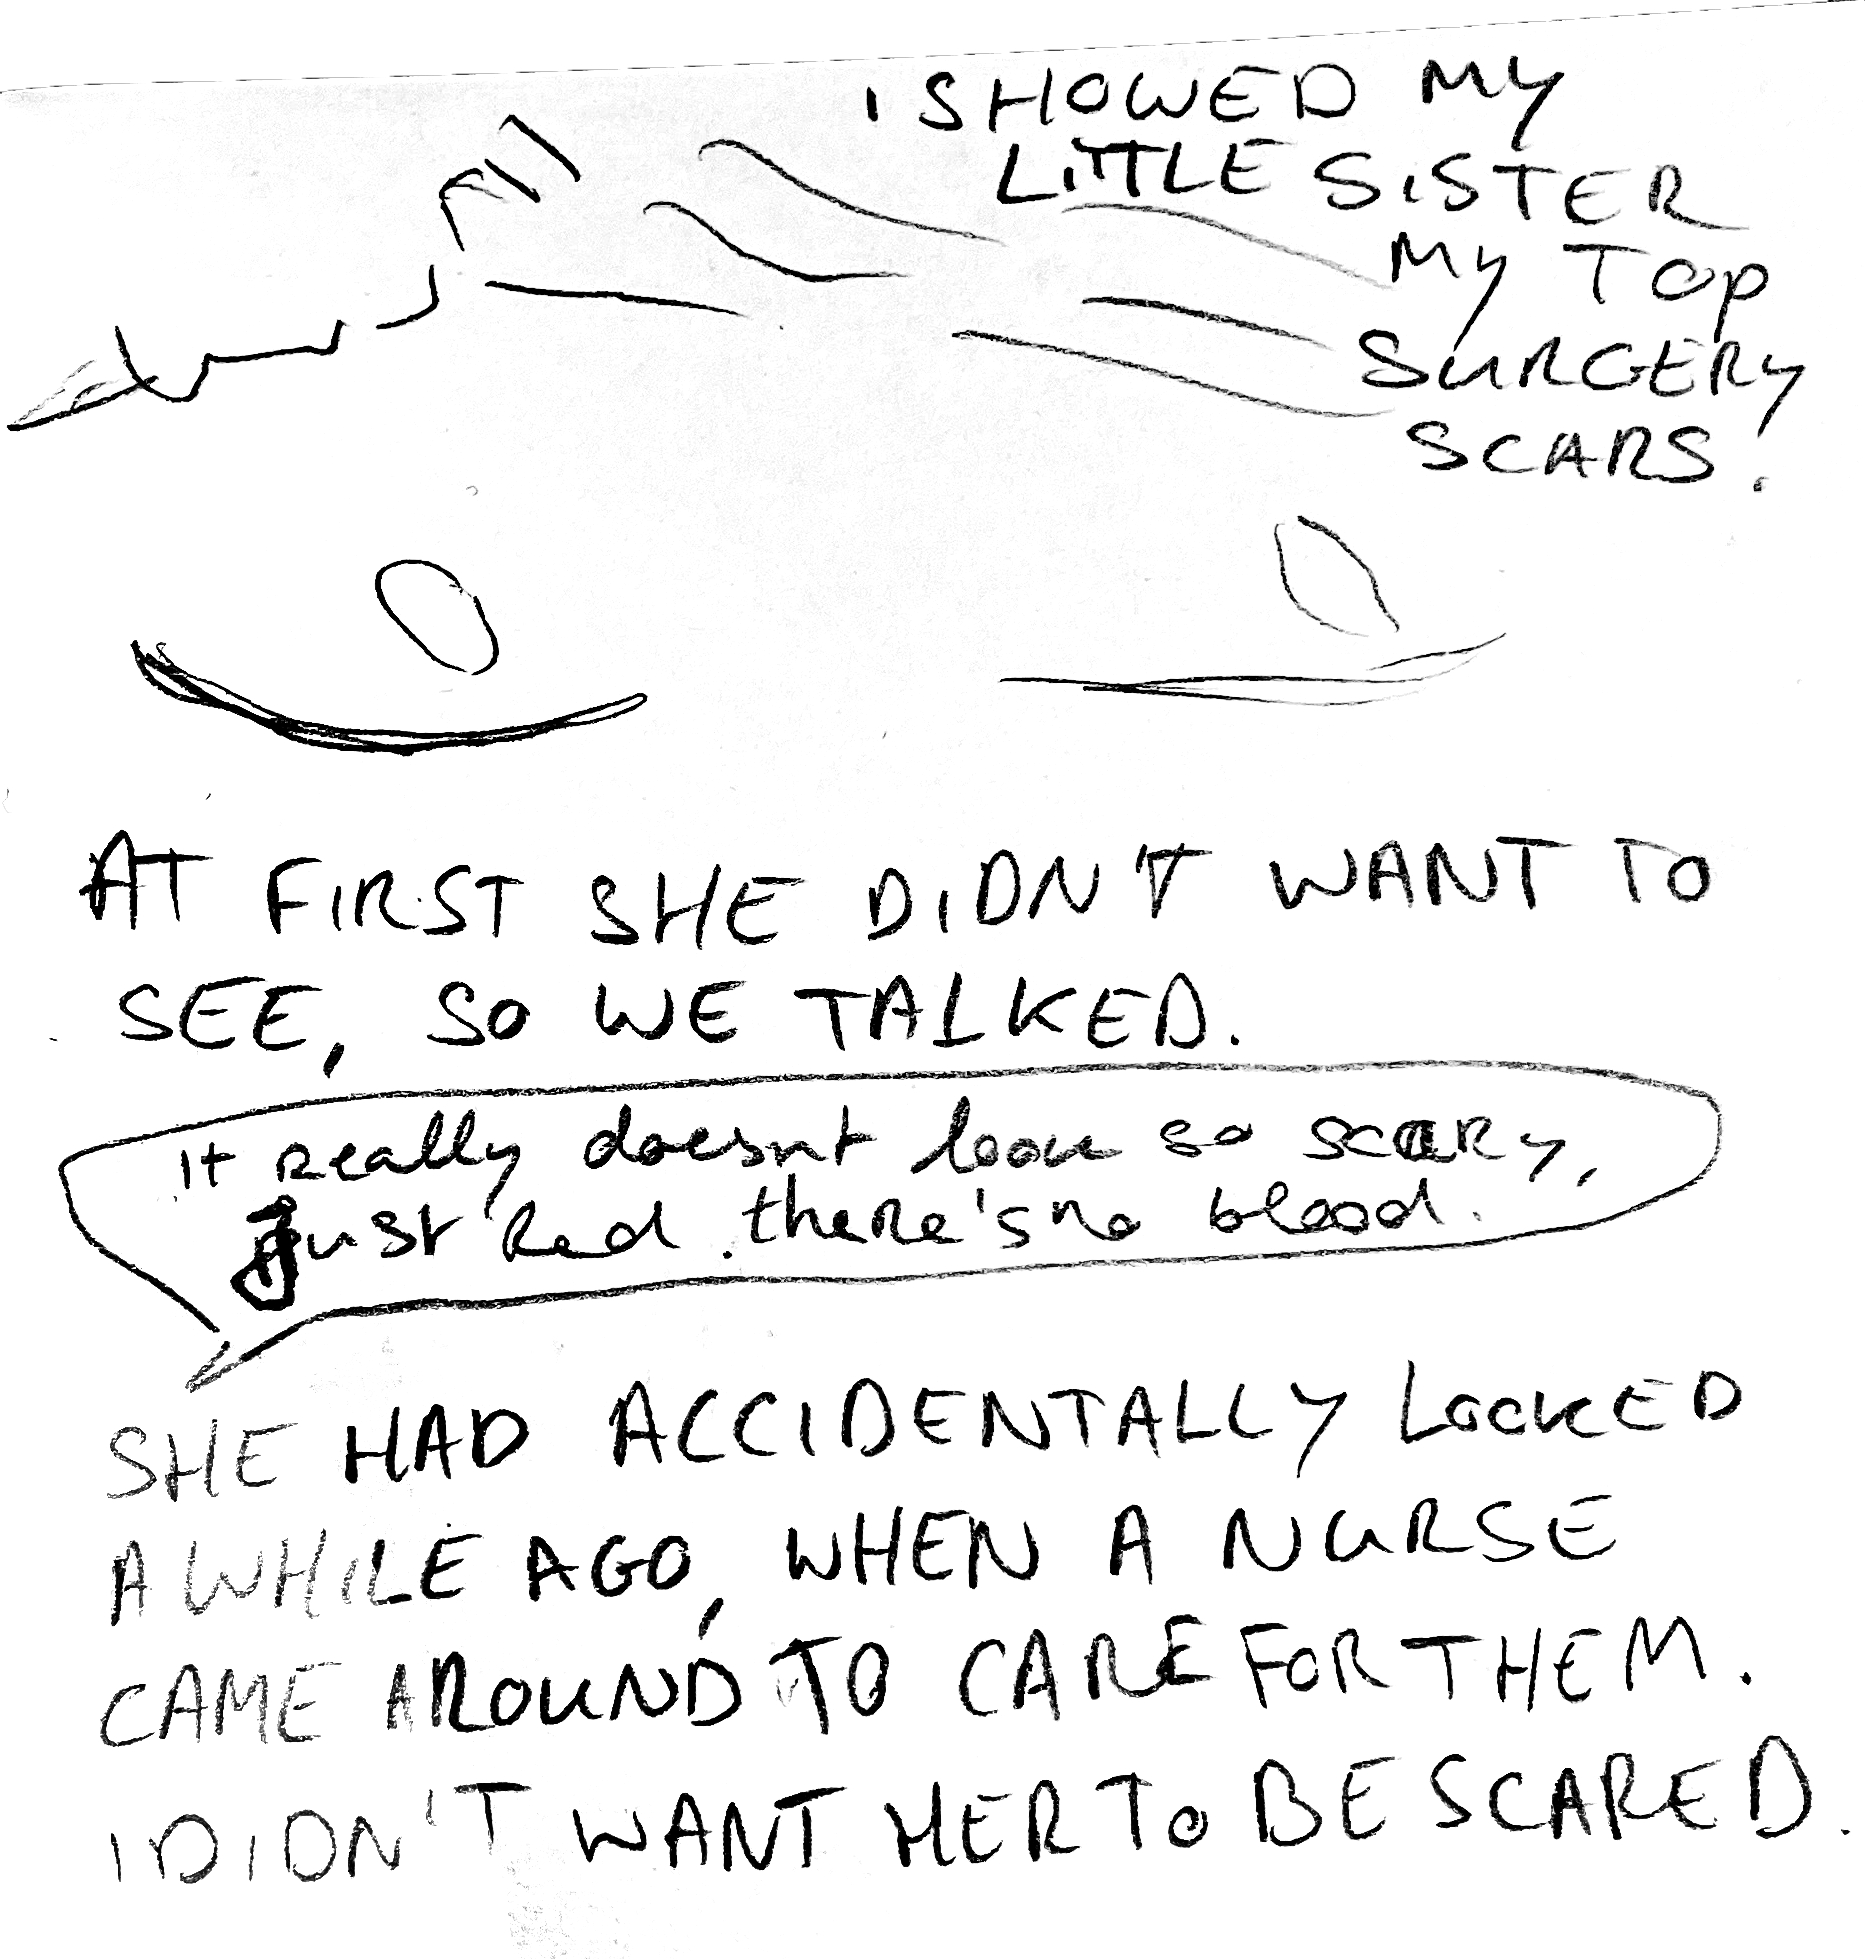 I SHOWED MY
LITTLE SISTER
MY TOP
SURGERY
SCARS.
AT FIRST SHE DIDN'T WANT TO
SEE, SO WE TALKED.
It really doesnt look so scary,
Just Red. there's no blood.
SHE HAD ACCIDENTALLY LOOKED
A WHILE AGO, WHEN A NURSE
CAME AROUND TO CARE FOR THEM.
I DIDN'T WANT HER TO BE SCARED.